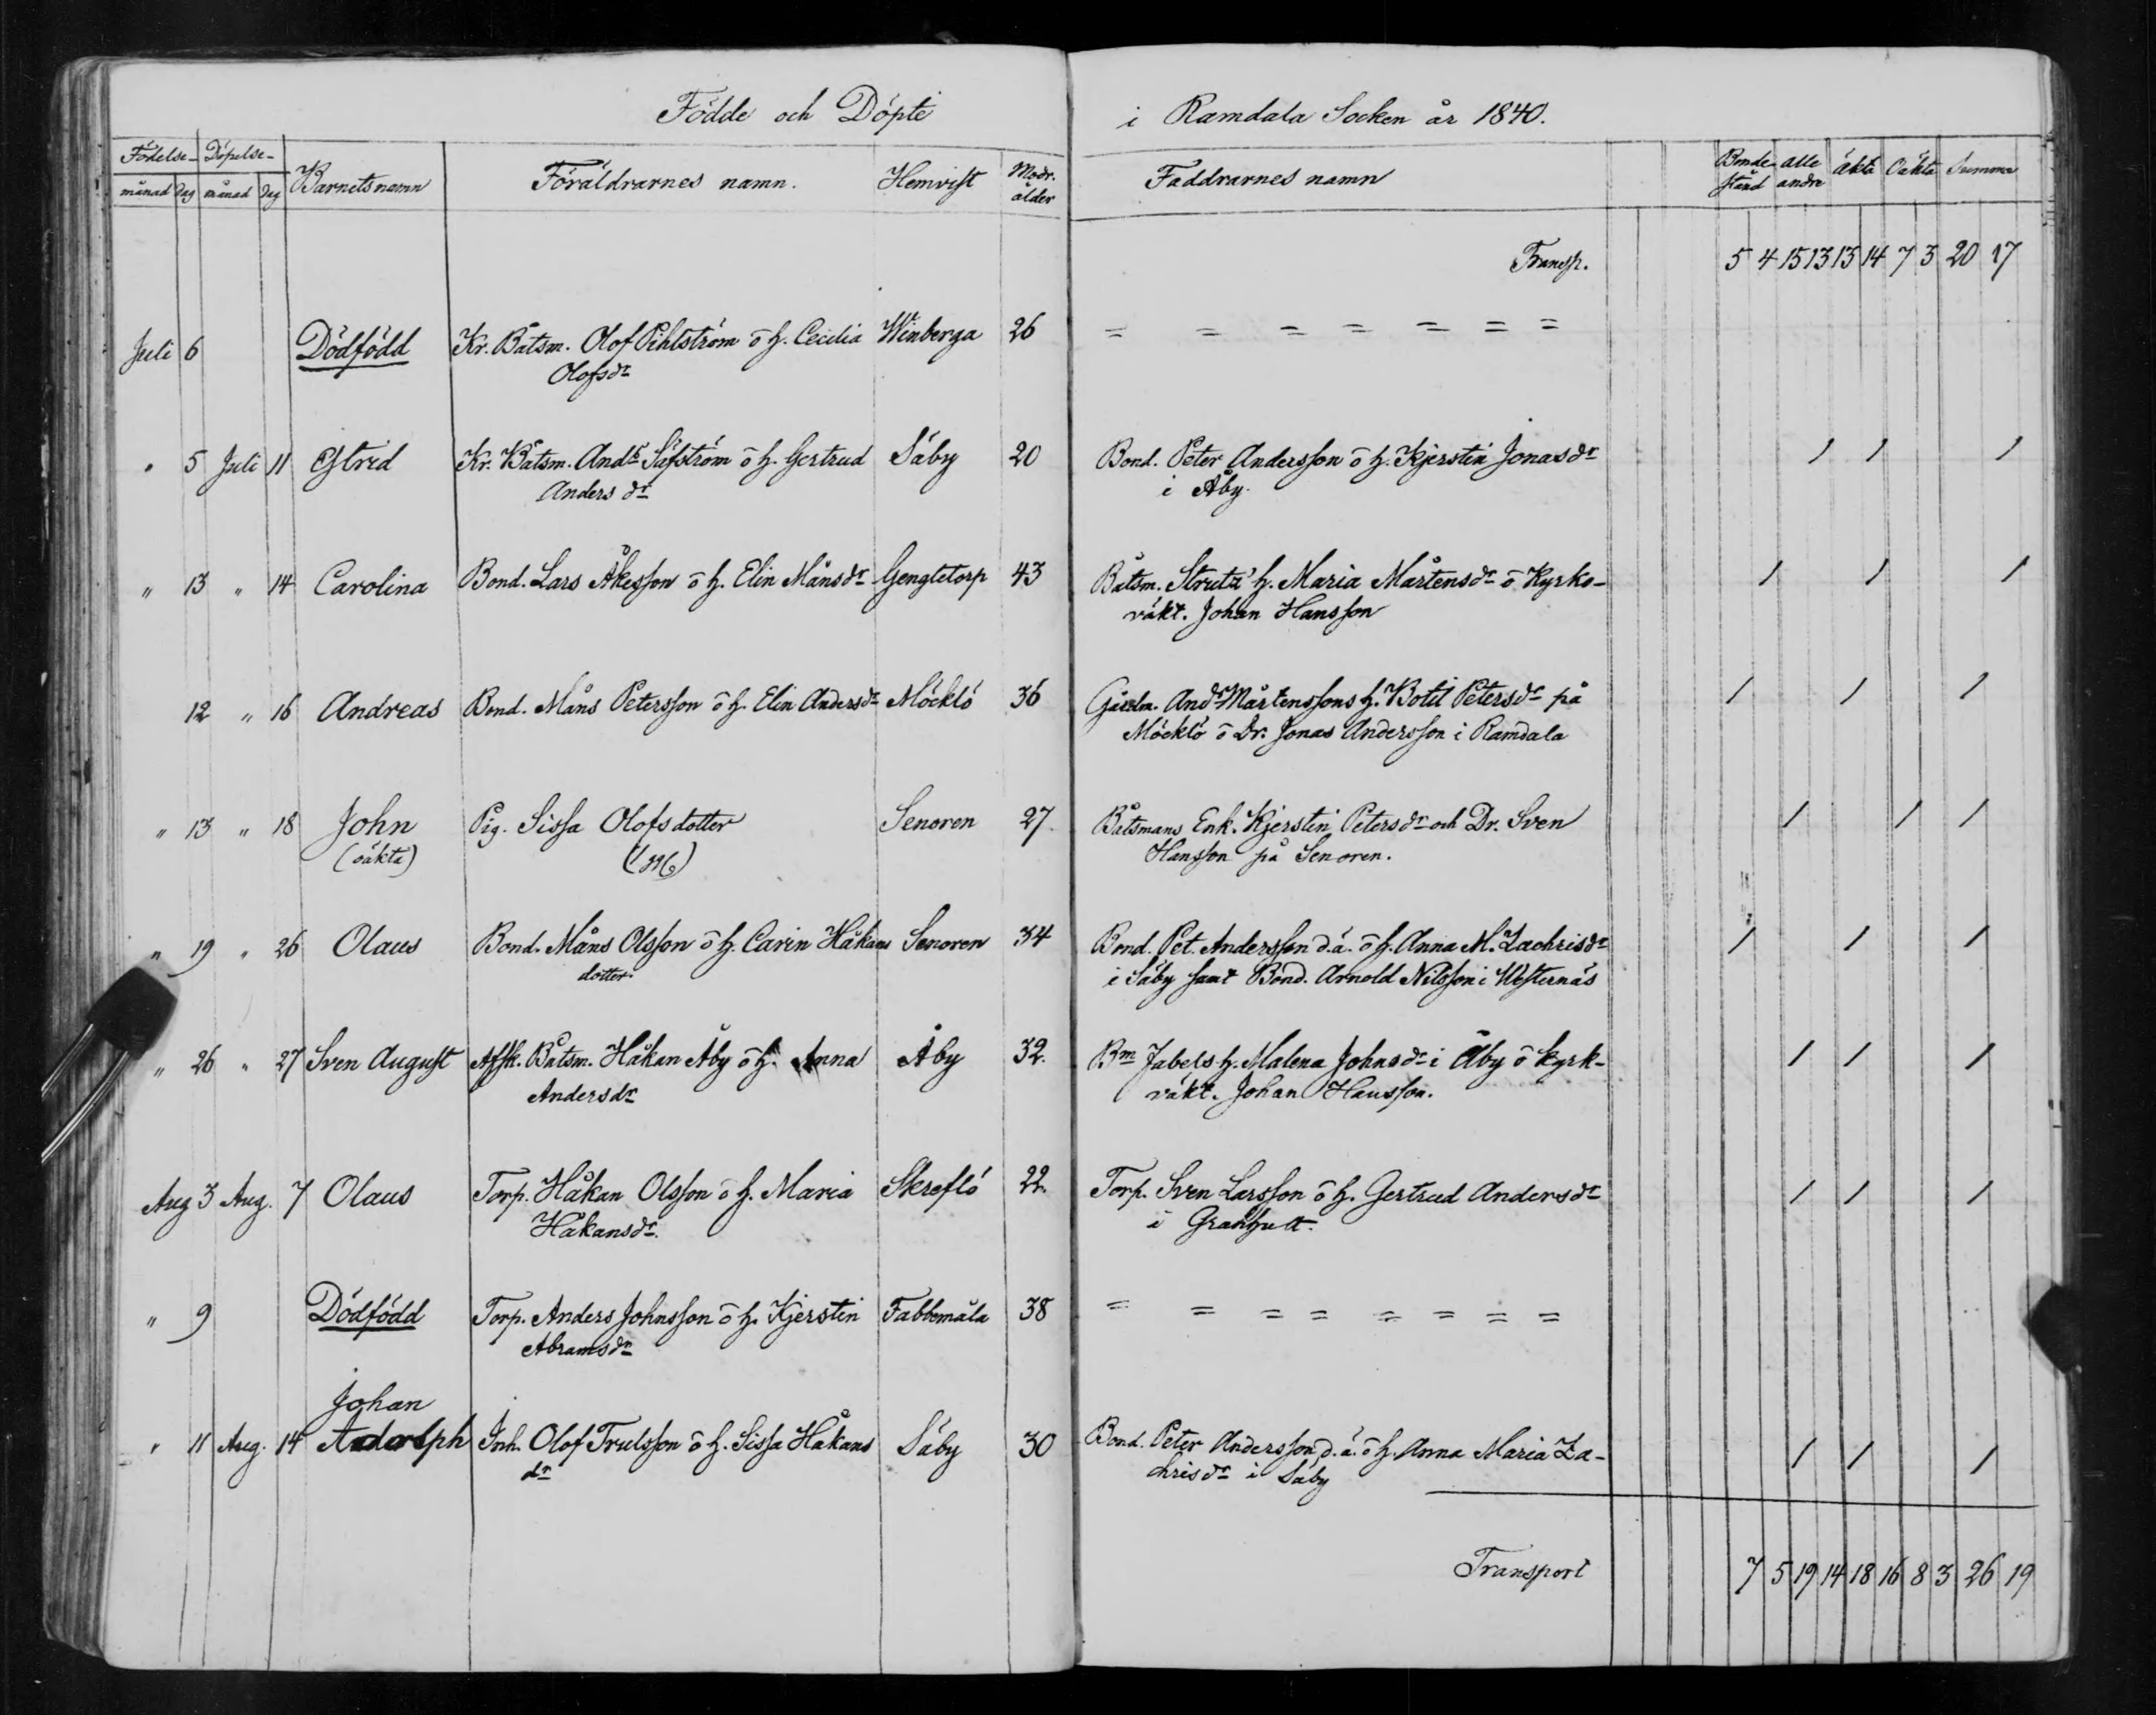 Födde och Döpte
i Ramdala Socken år 1840.
Födelse- Döpelse- Barnets namn Föräldrarnes namn. Hemvist Modr. ålder Faddrarnes namn Bonde stånd alla andre äkta Oäkta Summa
månad dag månad dag
Transp. 5 4 15 13 13 14 7 3 20 17
Juli 6 Dödfödd Kr. Båtsm. Olof Pihlström o h. Cecilia Winberga 26 = = = = = = =
Olofsdr
" 5 Juli 11 Estrid Kr. Båtsm. Ands Säfström o h. Gertrud Säby 20 Bond. Peter Andersson o h. Kjerstin Jonasdr 1 1 1
Andersdr i Åby.
" 13 " 14 Carolina Bond. Lars Åkesson o h. Elin Månsdr Gengletorp 43 Båtsm. Struts h. Maria Mårtensdr o Kyrko- 1 1 1
väkt. Johan Hansson
12 " 16 Andreas Bond. Måns Petersson o h. Elin Andersdr Möcklö 36 Ands Mårtenssons h. Botil Petersdr på 1 1 1
Möcklö o Dr. Jonas Andersson i Ramdala
" 13 " 18 John Pig. Sissa Olofsdotter Senoren 27. Båtsmans Enk. Kjerstin Petersdr och Dr. Sven 1 1 1
(oäkta) Hansson på Senoren.
" 19 " 26 Olaus Bond. Måns Olsson o h. Carin Håkans Senoren 34 Bond. Pet. Andersson d.ä. o h. Anna M. Zachrisdr 1 1 1
dotter. i Säby samt Bond. Arnold Nilsson i Westernäs
" 26 " 27 Sven August Afsk. Båtsm. Håkan Åby o h. Anna Åby 32. Bm Jabels h. Malena Johnsdr i Åby o kyrk- 1 1 1
Andersdr väkt. Johan Hansson.
Aug 3 Aug. 7 Olaus Torp. Håkan Olsson o h. Maria Skreflö 22. Torp. Sven Larsson o h. Gertrud Andersdr 1 1 1
Håkansdr. i Granhult.
" 9 Dödfödd Torp. Anders Johnsson o h. Kjerstin Fabbemåla 38 = = = = = = = =
Abramsdr
Johan
" 11 Aug. 14 Inh. Olof Trulsson o h. Sissa Håkans Säby 30 Bond. Peter Andersson d.ä. o h. Anna Maria Za- 1 1 1
dr chrisdr i Säby
Transport 7 5 19 14 18 16 8 3 26 19